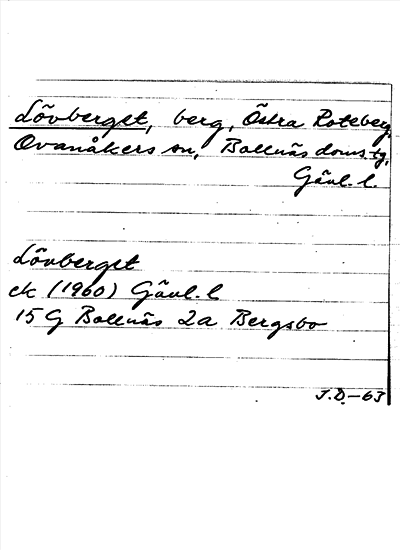 Lövberget, berg, Östra Roteberg,
Ovanåkers sn, Bollnäs doms.tg,
Gävl. l.
Lövberget
ek (1960) Gävl. l
15 G Bollnäs 2a Bergsbo
J.D.-63